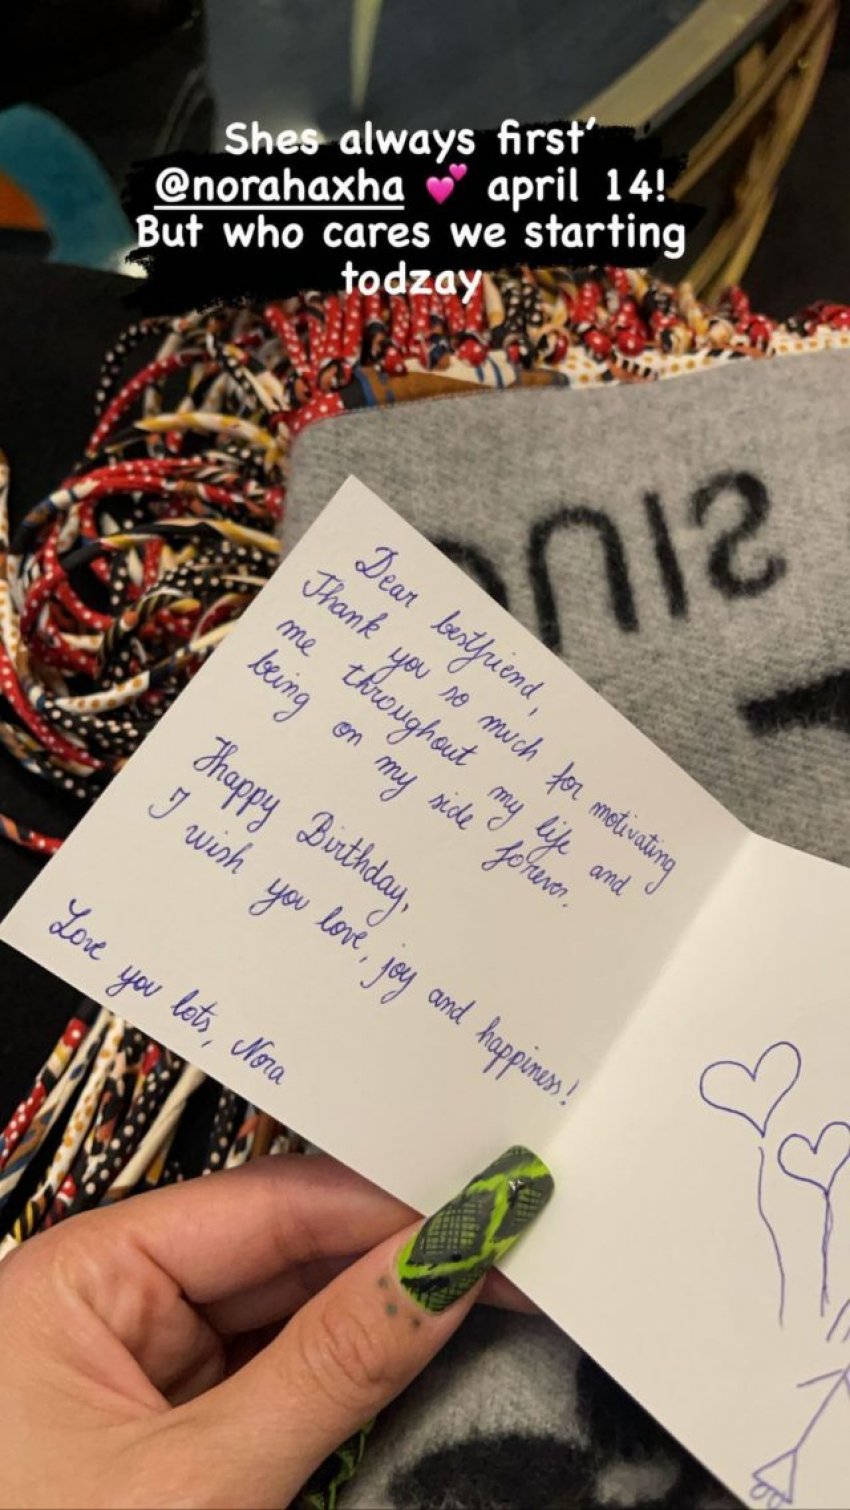 Shes always first’
@norahaxha 💕 april 14!
But who cares we starting
todzay
Dear bestfriend,
Thank you so much for motivating
me throughout my life and
being on my side forever.
Happy Birthday,
I wish you love, joy and happiness!
Love you lots, Nora